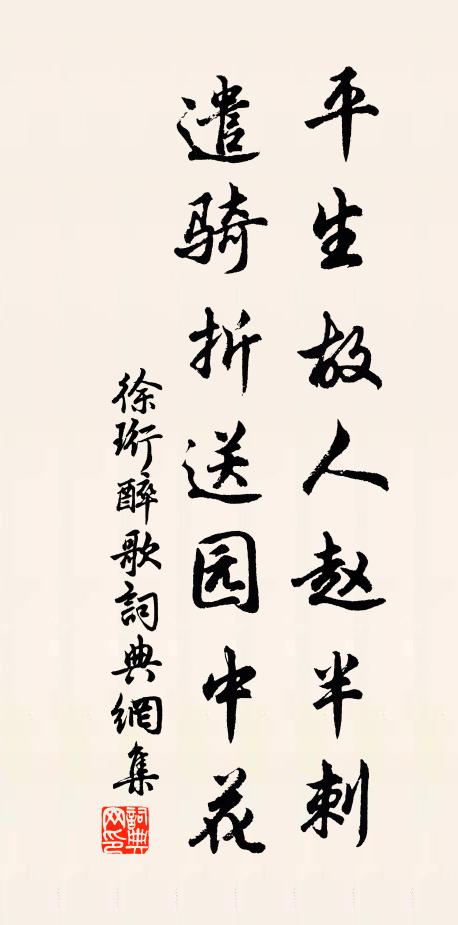 平生故人赵半刺
遣骑折送园中花
徐珩醉歌詞典網集
詞典网印